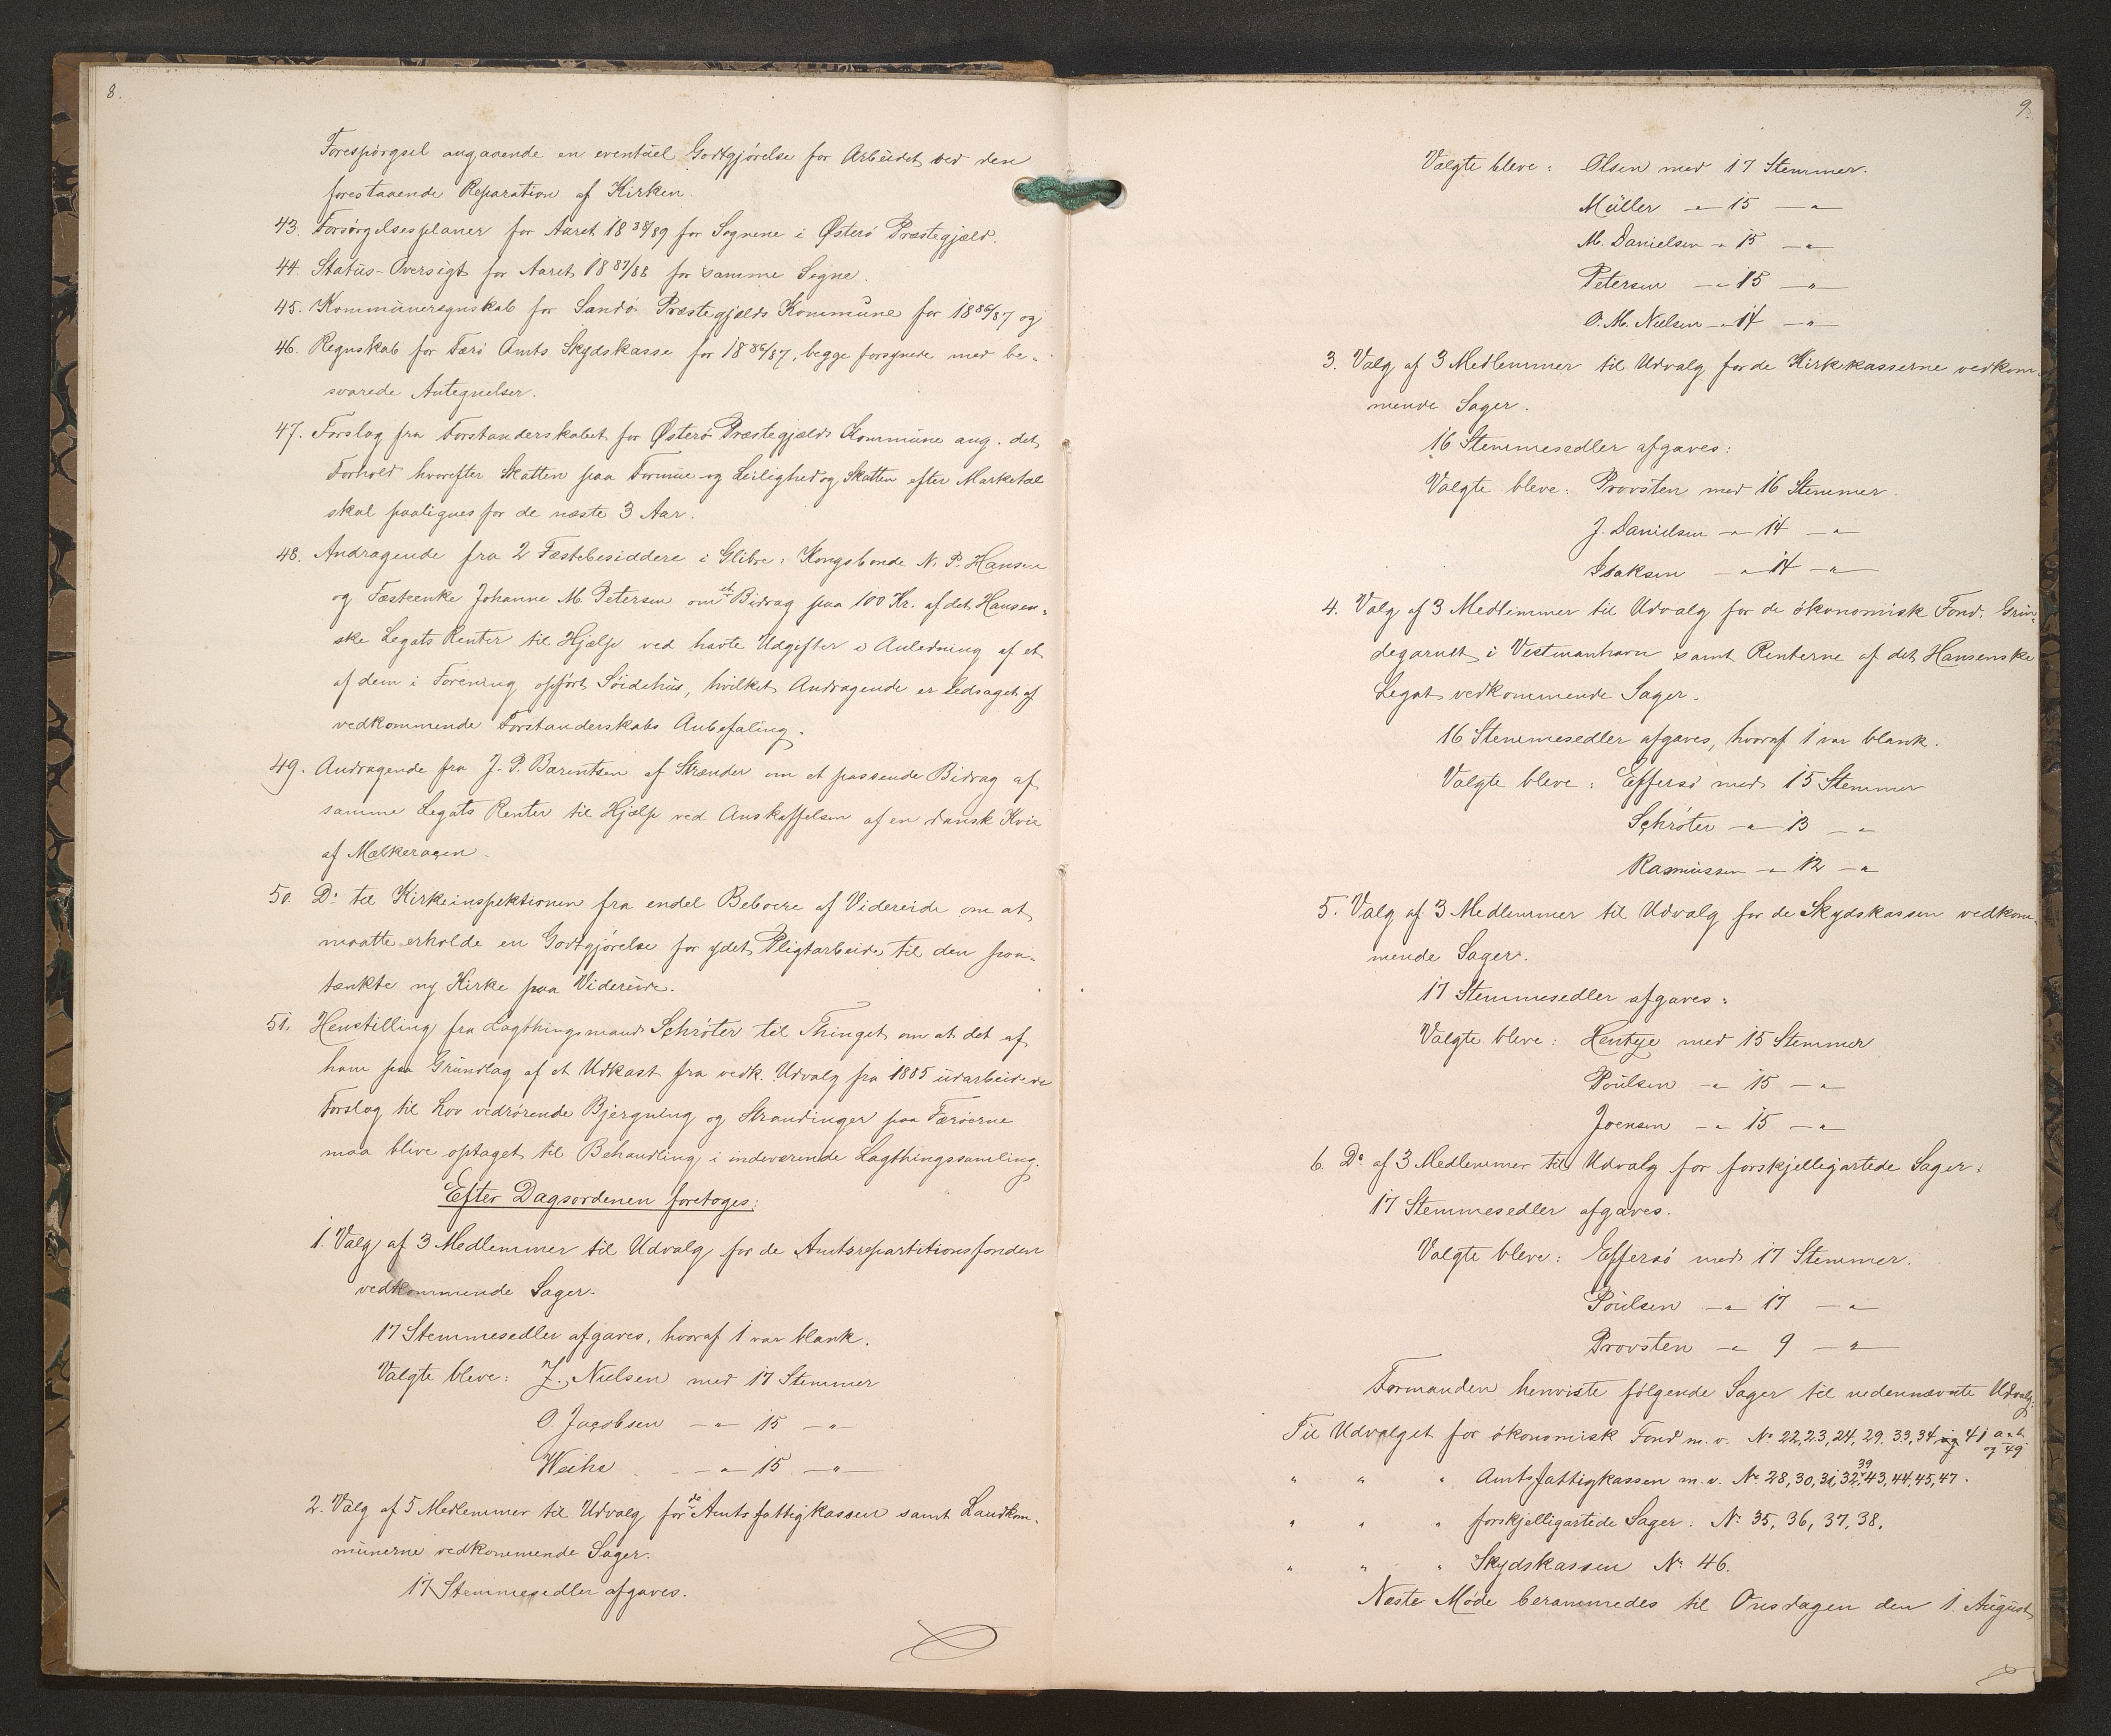 8.
Forespørgsel angaaende en eventuel Godtgjørelse for Arbeidet ved den
forestaaende Reparation af Kirken.
43. Forsørgelsesplaner for Aaret 1888/89 for Sognene i Østerø Præstegjæld.
44. Status-Oversigt for Aaret 1887/88 for samme Sogne.
45. Kommuneregnskab for Sandø Præstegjælds Kommune for 1886/87 og
46. Regnskab for Færø Amts Skydskasse for 1886/87, begge forsynede med be-
svarede Antegnelser.
47. Forslag fra Forstanderskabet for Østerø Præstegjælds Kommune ang. det
Forhold hvorefter Skatten paa Formue og Leilighed og Skatten efter Marketal
skal paalignes for de næste 3 Aar.
48. Andragende fra 2 Fæstebesiddere i Glibre: Kongsbonde N. P. Hansen
og Fæsteenke Johanne M. Petersen om et Bidrag paa 100 Kr. af det Hansen-
ske Legats Renter til Hjælp ved havte Udgifter i Anledning af et
af dem i Forening opført Søidehus, hvilket Andragende er ledsaget af
vedkommende Forstanderskabs Anbefaling.
49. Andragende fra J. P. Barentsen af Strænder om et passende Bidrag af
samme Legats Renter til Hjælp ved Anskaffelsen af en dansk Kvie
af Malkeracen.
50. Do til Kirkeinspektionen fra endel Beboere af Videreide om at
maatte erholde en Godtgjørelse for ydet Pligtarbeide til den paa-
tænkte ny Kirke paa Videreide.
51. Henstilling fra Lagthingsmand Schrøter til Thinget om at det af
ham paa Grundlag af et Udkast fra vedk. Udvalg fra 1885 udarbeidede
Forslag til Lov vedrørende Bjergning og Strandinger paa Færøerne
maa blive optaget til Behandling i indeværende Lagthingssamling.
Efter Dagsordenen foretoges:
1. Valg af 3 Medlemmer til Udvalg for de Amtsrepartitionsfonden
vedkommende Sager.
17 Stemmesedler afgaves, hvoraf 1 var blank.
Valgte bleve: J. Nielsen med 17 Stemmer
O. Jacobsen — " — 15 — "
Weihe — " — 15 — " —
2. Valg af 5 Medlemmer til Udvalg for de Amtsfattigkassen samt Landkom-
munerne vedkommende Sager.
17 Stemmesedler afgaves.
9.
Valgte bleve: Olsen med 17 Stemmer.
Müller — " — 15 — " —
M. Danielsen — " 15 — " —
Petersen — " — 15 — " —
O. M. Nielsen — " — 14 — " —
3. Valg af 3 Medlemmer til Udvalg for de Kirkekasserne vedkom-
mende Sager.
16 Stemmesedler afgaves:
Valgte bleve: Provsten med 16 Stemmer.
J. Danielsen — " — 14 — " —
Isaksen — " — 14 — " —
4. Valg af 3 Medlemmer til Udvalg for de økonomisk Fond, Grin-
degarnet i Vestmanhavn samt Renterne af det Hansenske
Legat vedkommende Sager.
16 Stemmesedler afgaves, hvoraf 1 var blank.
Valgte bleve: Effersø med 15 Stemmer
Schrøter — " — 13 — "
Rasmussen — " — 12 — "
5. Valg af 3 Medlemmer til Udvalg for de Skydskassen vedkom-
mende Sager.
17 Stemmesedler afgaves:
Valgte bleve: Hentze med 15 Stemmer
Poulsen — " — 15 — " —
Joensen — " — 15 — " —
6. Do af 3 Medlemmer til Udvalg for forskjelligartede Sager:
17 Stemmesedler afgaves.
Valgte bleve: Effersø med 17 Stemmer.
Poulsen — " — 17 — " —
Provsten — " 9 — " —
Formanden henviste følgende Sager til nedennævnte Udvalg:
Til Udvalget for økonomisk Fond m. v. No 22, 23, 24, 29, 33, 34, og 41 a & b og 49
" " " Amtsfattigkassen m. v. No 28, 30, 31, 32, 39, 43, 44, 45, 47.
" " " forskjelligartede Sager: No 35, 36, 37, 38.
" " " Skydskassen No 46.
Næste Møde berammedes til Onsdagen den 1. August